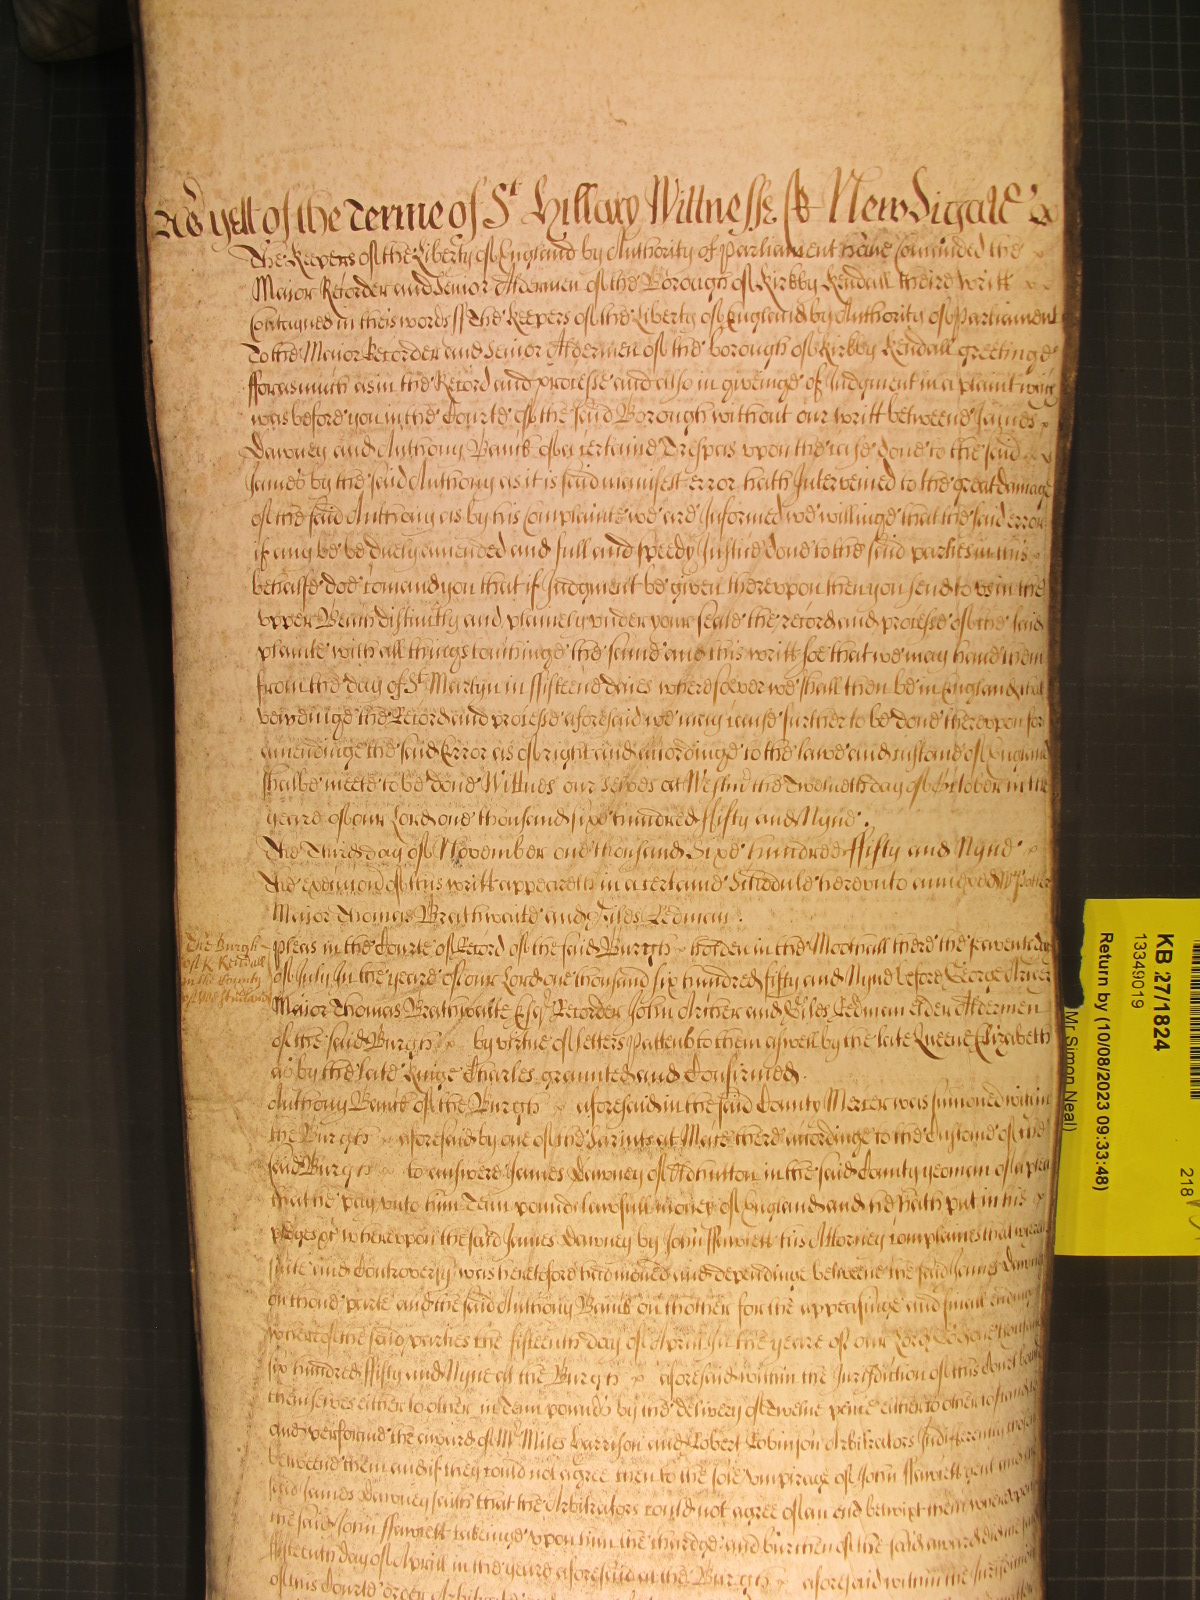 As yett of the Terme of St Hillary Wittnesse Newdigate
The Keepers of the Liberty of England by Authority of Parliament have Comanded the
Maior Recorder and Senior Aldermen of the Borough of Kirkby Kendall theire writt
Contayned in theis words ss The Keepers of the Liberty of England by Authority of Parliament
To the Maior Recorder and Senior Aldermen of the borough of Kirkby Kendall greetinge
fforasmuch as in the Record and processe and also in giveinge of Judgment in a plaint which
was before you in the Courte of the said Borough without our writt betweene James
Dawney and Anthony Banks of a certaine Trespas upon the case done to the said
James by the said Anthony as it is said manifest error hath Intervened to the great damage
of the said Anthony as by his Complainte we are Informed we willinge that the said error
if any be be duely amended and full and speedy Justice done to the said parties in this
behalfe doe comand you that if Judgment be given thereupon then you send to us in the
upper Bench distinctly and plainely under your seale the record and processe of the said
plainte with all things touchinge the same and this writt soe that we may have them
from the day of St Martyn in ffifteene daies wheresoever we shall then be in England that
viewinge the Record and processe aforesaid we may cause further to be done thereupon for
amendinge the said Error as of right and accordinge to the lawe and custome of England
shalbe meete to be done Wittnes our selves at Westmr the Twelueth day of October in the
yeare of our Lord one thousand sixe hundred ffifty and Nyne .
The Third day of November one thousand Sixe hundred ffifty and Nyne
The execucion of this writt appeareth in a certaine Schedule hereunto annexed
Maior Thomas Brathwaite and Giles Redman .
The Burgh
of K Kendall
in the County
of Westmerland
Pleas in the Courte of Record of the said Burgh holden in the Mootehall there the
of July In the yeare of our Lord one thousand six hundred fifty and Nyne before George Archer
Maior Thomas Brathwaite Esqr Recorder John Archer and Giles Redman elder Aldermen
of the said Burgh by virtue of Letters Pattents to them aswell by the late Queene Elizabeth
as by the late Kinge Charles graunted and Confirmed .
Anthony Banks of the Burgh aforesaid in the said County Mercer was sumoned within
the Burgh aforesaid by one of the Sariants at Mace there accordinge to the Custome of the
said Burgh to answere James Dawney of in the said County yeoman of a plea
that he pay unto him Tenn pounds lawfull money of England and he hath put in his
pledges &c whereupon the said James Dawney by John ffawcett his Attorney complaines that whereas
suite and Controversy was heretofore had moved and dependinge betweene the said James Dawney
on thone parte and the said Anthony Banks on thother for the appeasinge and finall endinge
whereof the said parties the fifteenth day of Aprill In the yeare of our Lord God one thousand
six hundred ffifty and Nyne att the Burgh aforesaid within the Jurisdiction of this Court bound
themselves either to other in Tenn pounds by the delivery of twelve pence either to other to stand to
and performe the award of Mr Miles Harrison and Robert Robinson Arbitrators Indifferently chosen
betweene them and if they could not agree then to the sole Umpirage of John ffawcett gent and the
said James Dawney saith that the Arbitrators could not agree of an end betwixt them whereupon
the said John ffawcett takeinge upon him the chardge and burthen of the said award did the said
fifteenth day of Aprill in the yeare aforesaid at the Burgh aforesaid within the Jurisdiction
of this Courte order
KB 27/1824
13349019
Return by (10/08/2023 09:33:48)
Mr Simon Neal)
218